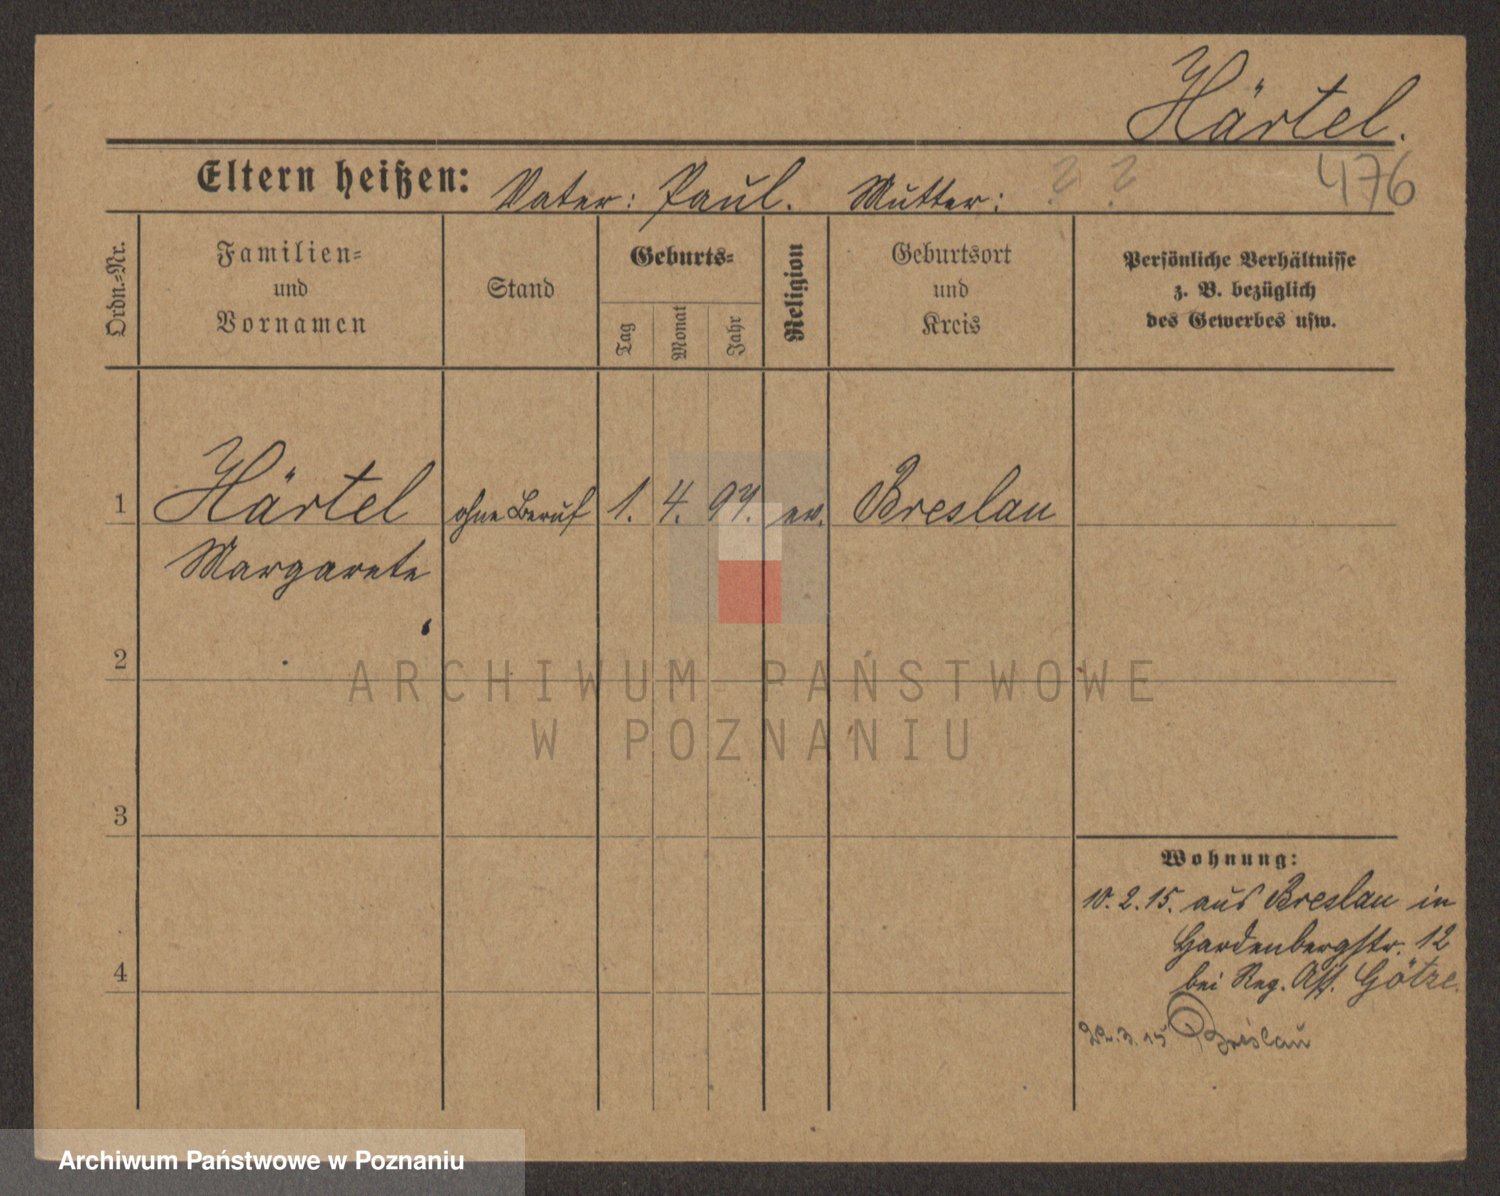 Härtel.
476
Eltern heißen: Vater: Paul. Mutter: ? ?
Ordn.=Nr.
Familien=
und
Vornamen
Stand
Geburts=
Tag
Monat
Jahr
Religion
Geburtsort
und
Kreis
Persönliche Verhältnisse
z. B. bezüglich
des Gewerbes usw.
1 Härtel ohne Beruf 1. 4. 97. ev. Breslau
Margarete
2
3
4
Wohnung:
10.2.15. aus Breslau in
Hardenbergstr. 12
bei Reg. Ass. Götze.
22.3.15 Breslau
ARCHIWUM PAŃSTWOWE
W POZNANIU
Archiwum Państwowe w Poznaniu